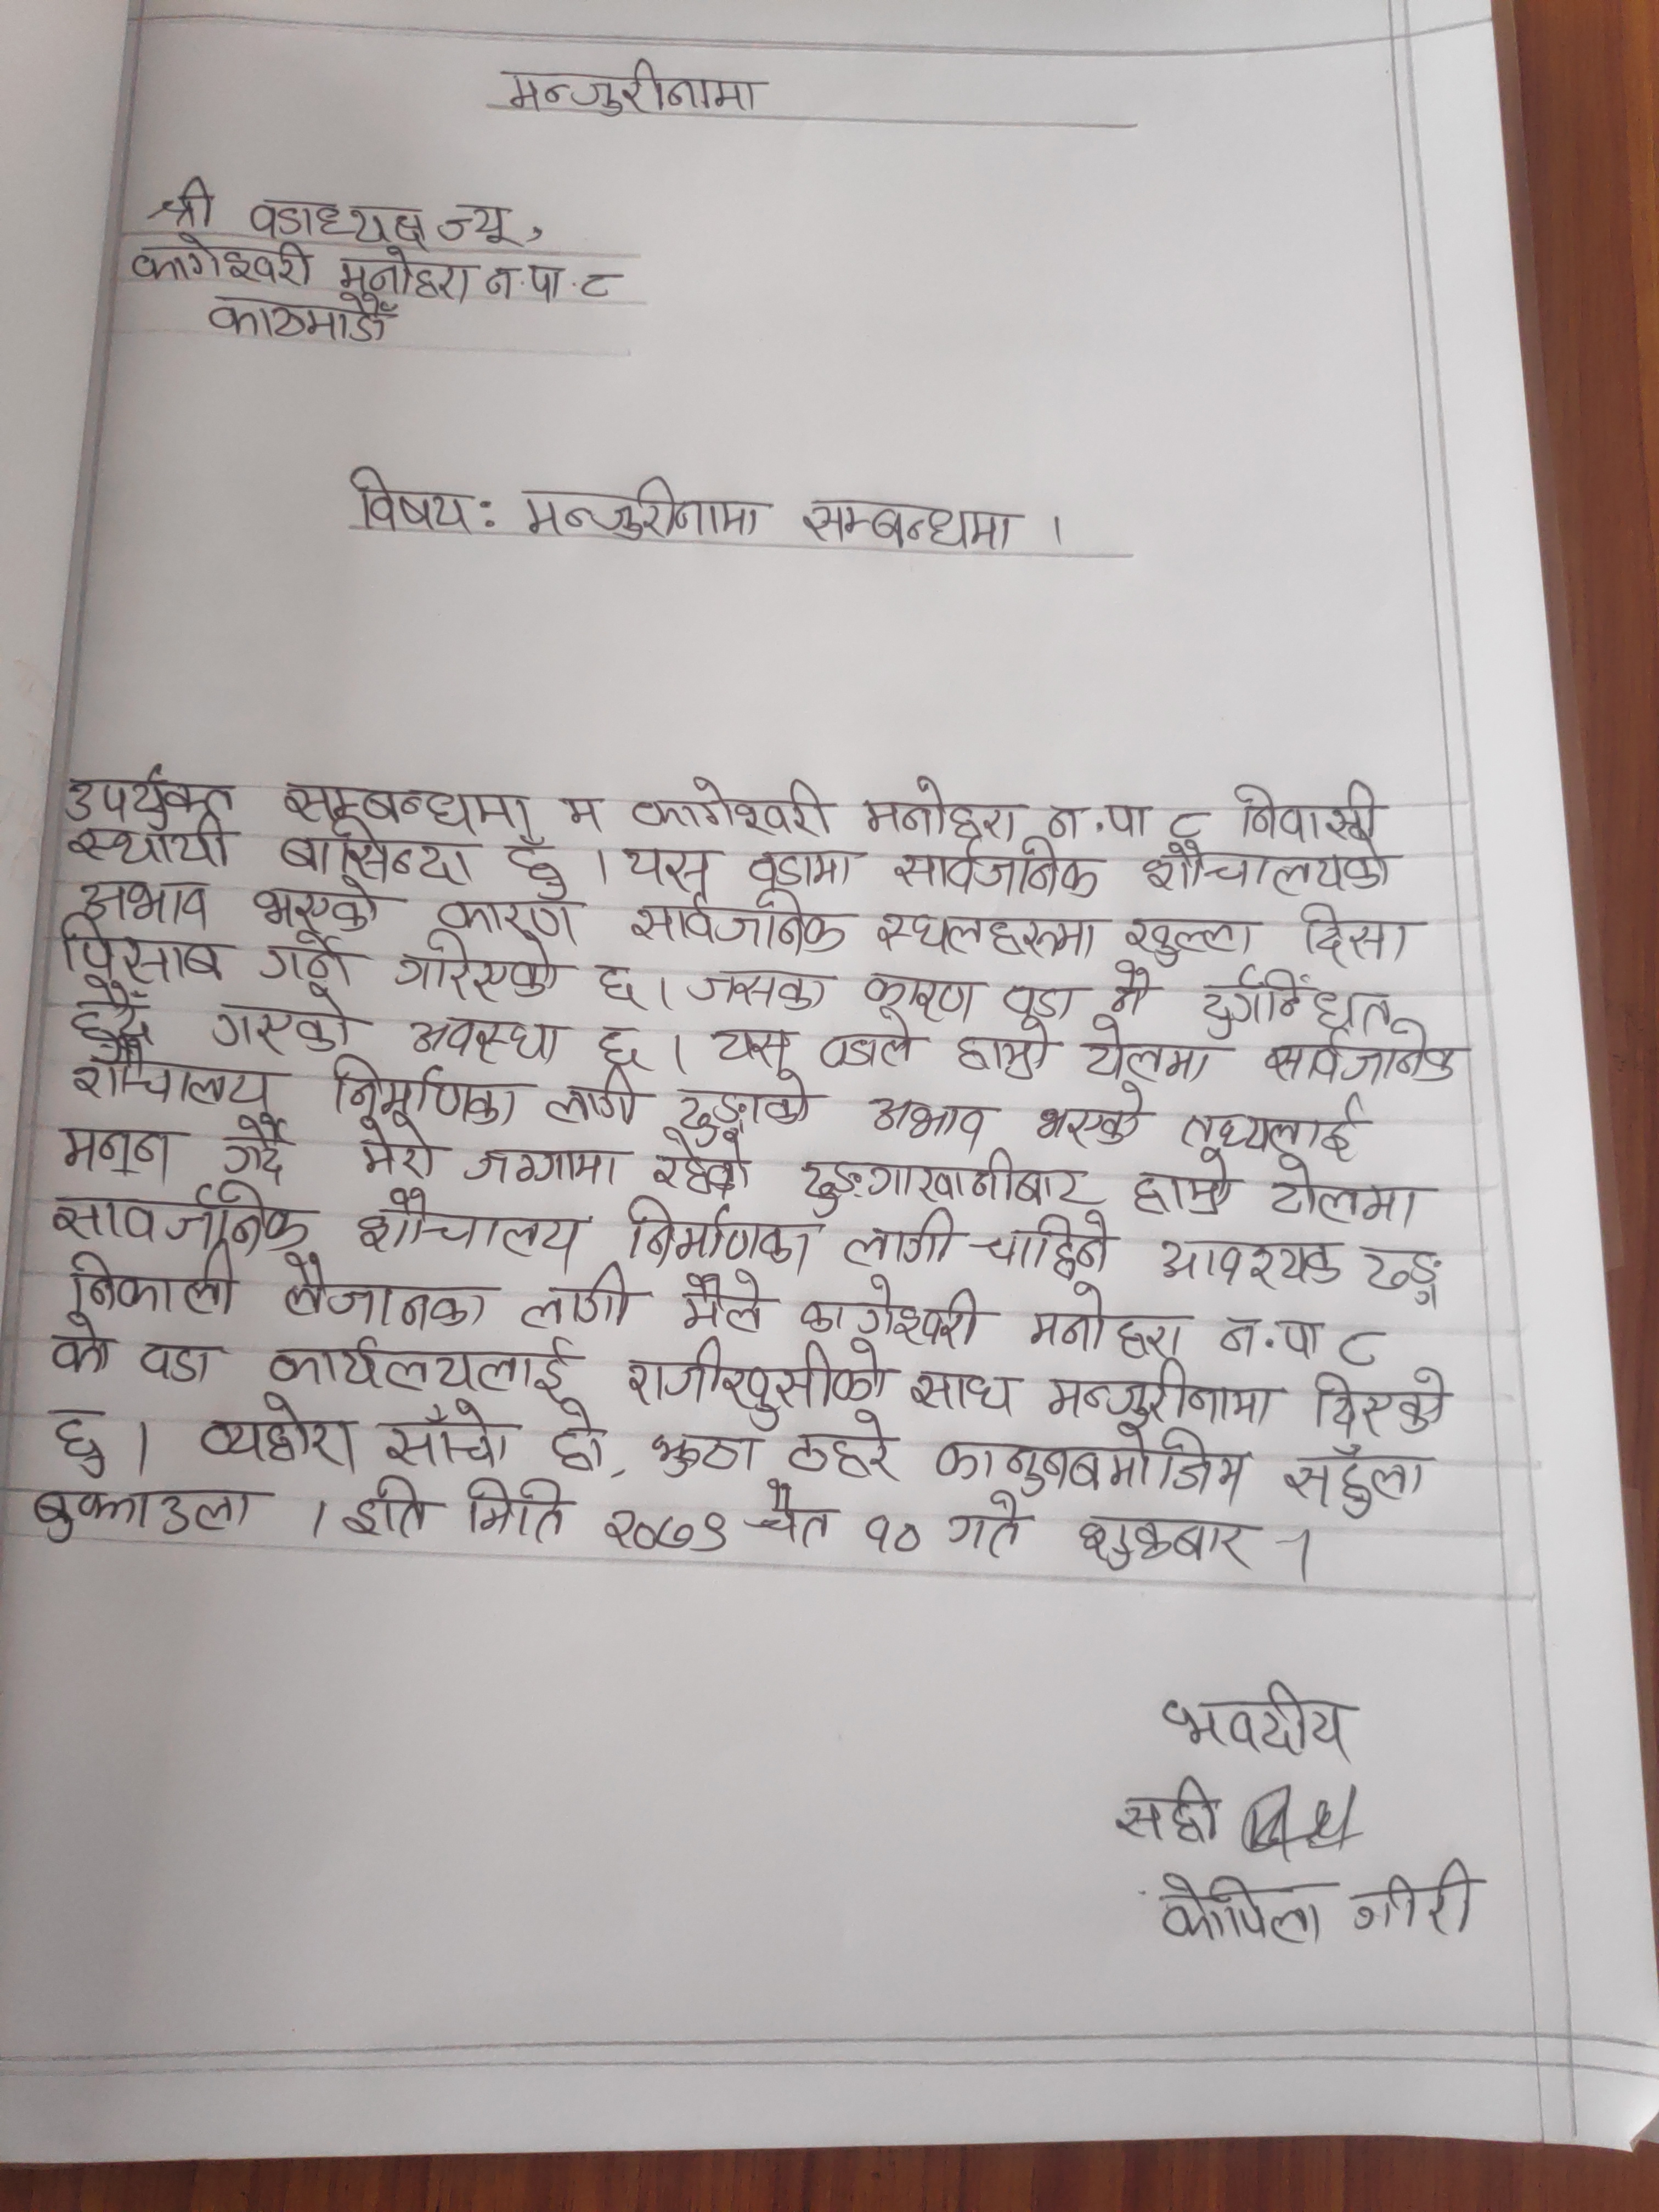 मन्जुरीनामा
श्री वडाध्यक्ष ज्यू,
कागेश्वरी मनोहरा न.पा.८
काठमाडौँ
विषय: मन्जुरीनामा सम्बन्धमा ।
उपर्युक्त सम्बन्धमा म कागेश्वरी मनोहरा न.पा ८ निवासी
स्थायी बासिन्दा हुँ । यस वडामा सार्वजनिक शौचालयको
अभाव भएको कारण सार्वजनिक स्थलहरूमा खुल्ला दिसा
पिसाब गर्ने गरिएको छ । जसका कारण वडा नै दुर्गन्धित
हुँदै गएको अवस्था छ । यस वडाले हाम्रो टोलमा सार्वजनिक
शौचालय निर्माणका लागी ढुङ्गाको अभाव भएको तथ्यलाई
मनन गर्दै मेरो जग्गामा रहेको ढुङ्गाखानीबाट हाम्रो टोलमा
सावर्जनिक शौचालय निर्माणका लागी चाहिने आवश्यक ढुङ्गा
निकाली लैजानका लागी मैले कागेश्वरी मनोहरा न.पा ८
को वडा कार्यलयलाई राजीखुसीको साथ मन्जुरीनामा दिएको
छु । व्यहोरा साँचो हो, झुठा ठहरे कानुनबमोजिम सहुँला
बुझाउला । इति मिति २०७९ चैत १० गते शुक्रबार ।
भवदीय
सही
कोपिला गीरी